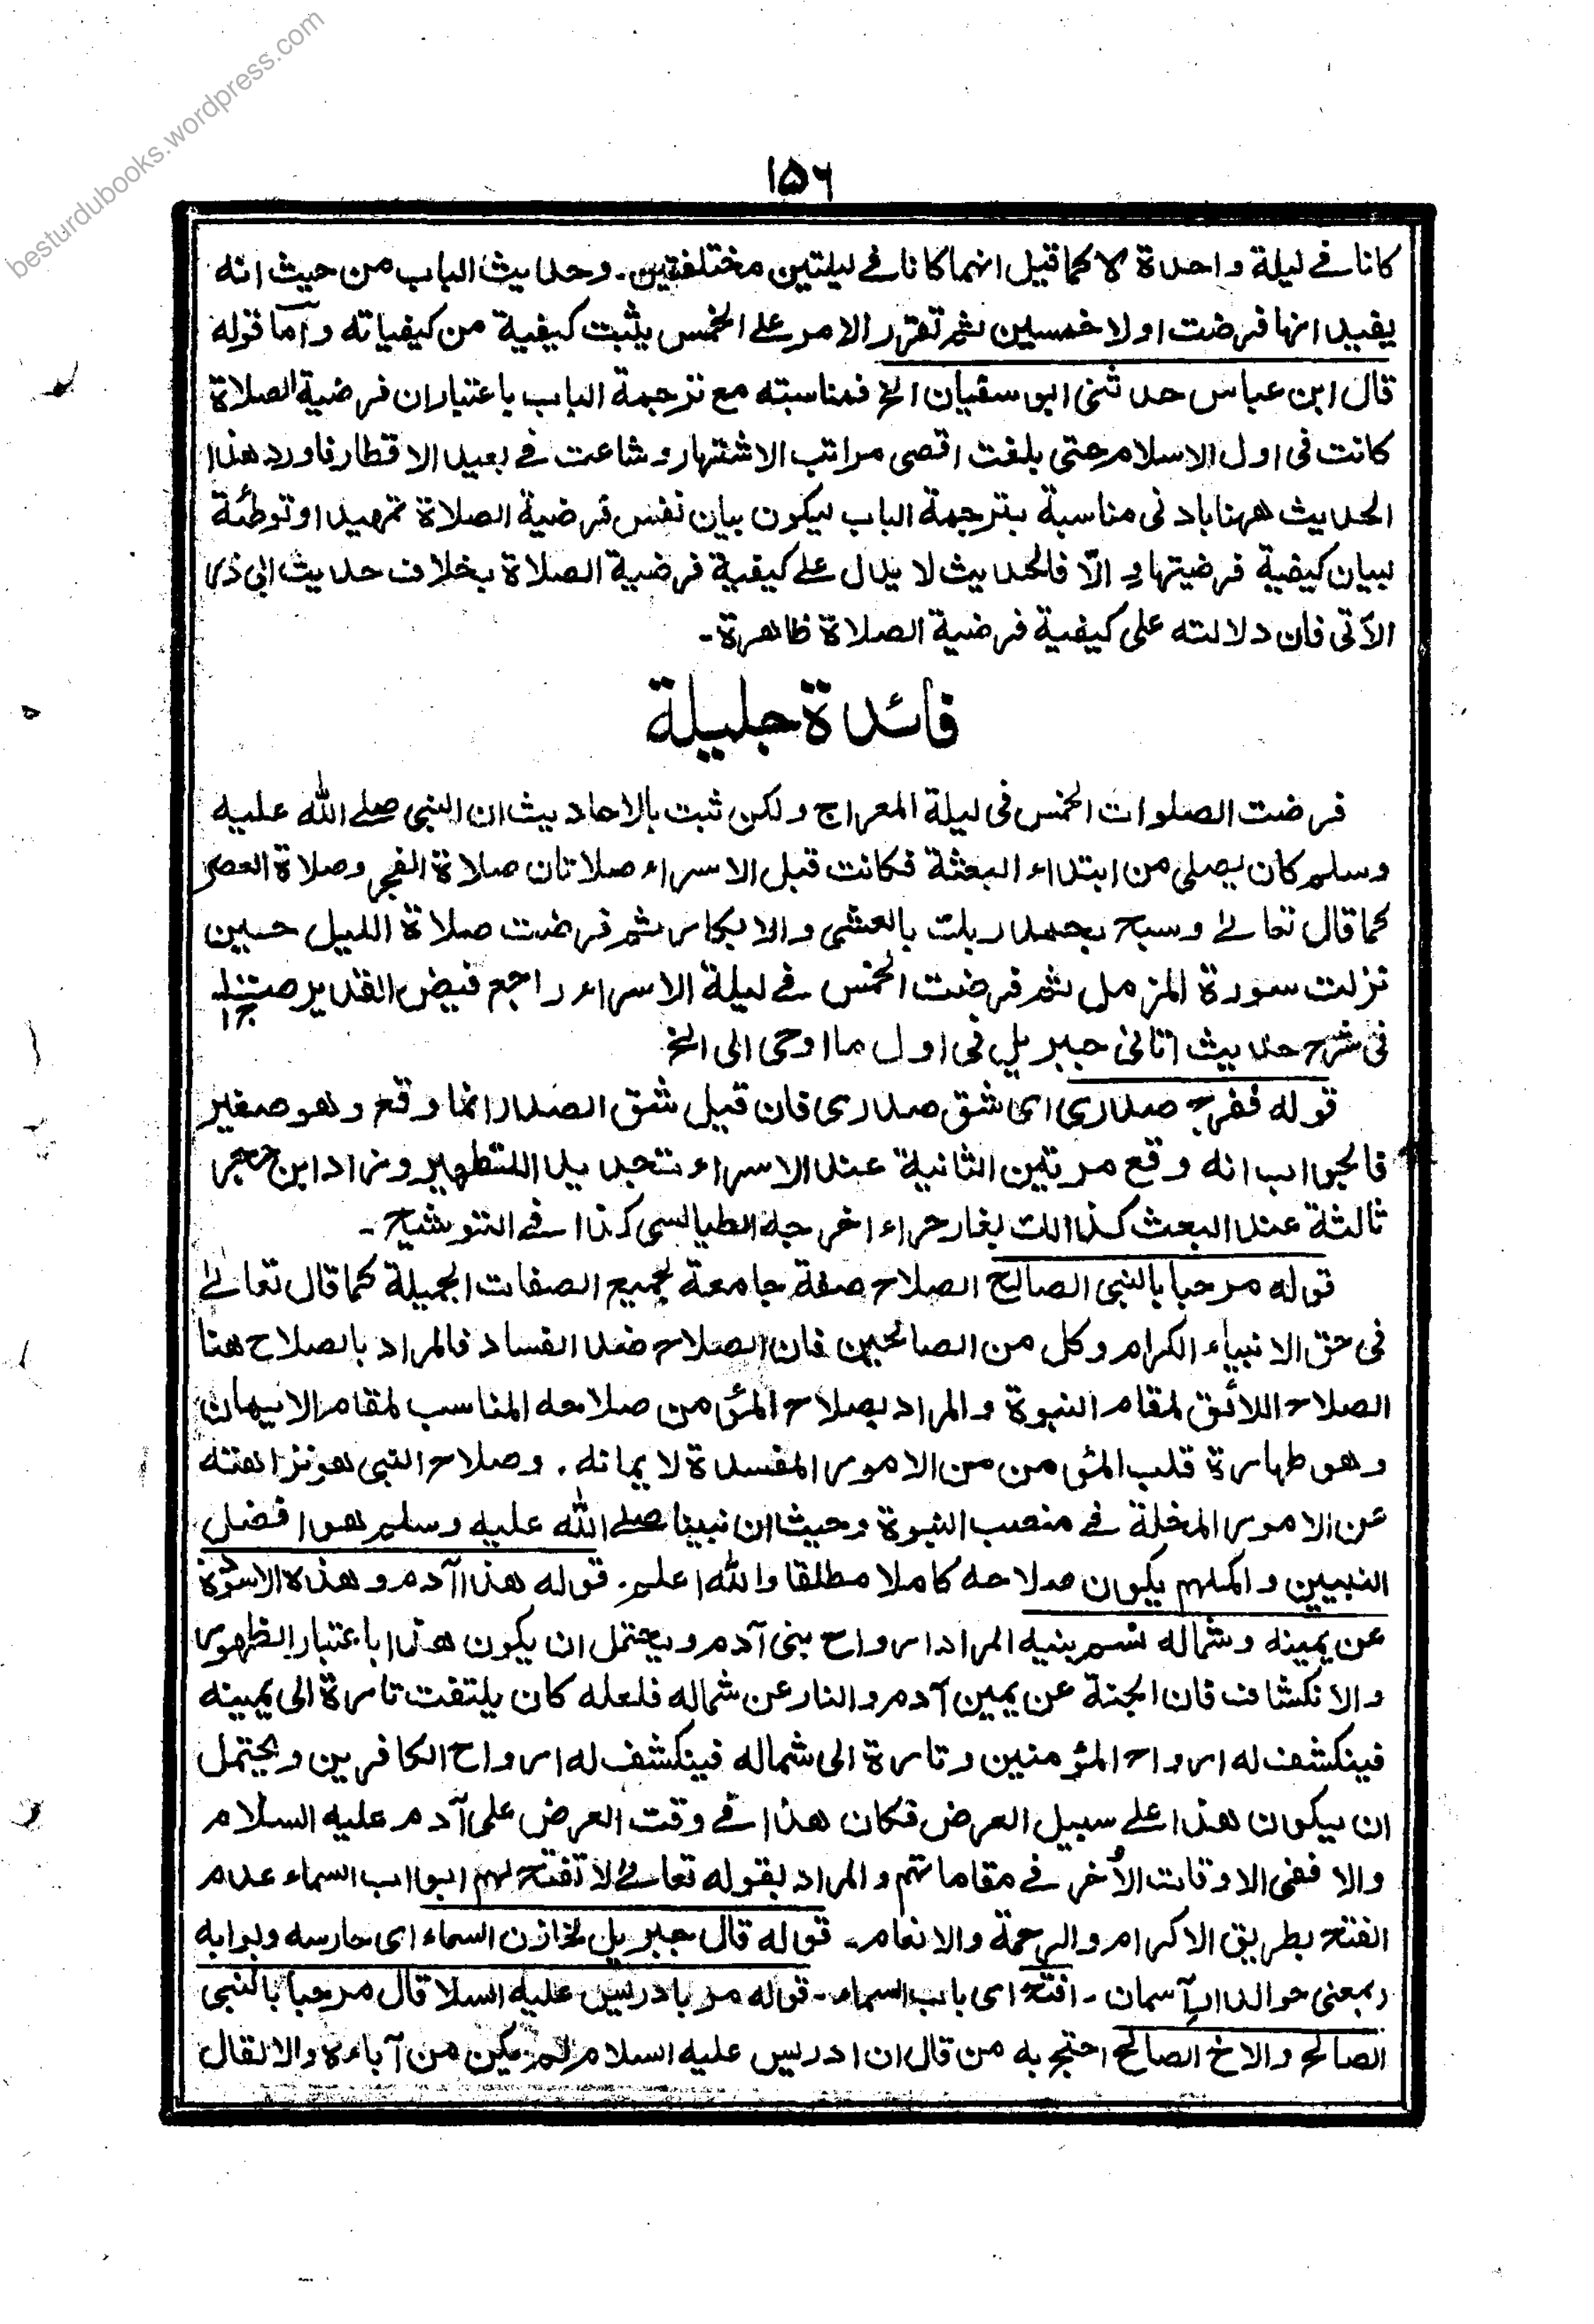 besturdubooks.wordpress.com
۱۵۶
كانا فے ليلة واحدة لا كما قيل انهما كانا فے ليلتين مختلفتين۔ وحديث الباب من حيث انه
يفيد انها فرضت اولا خمسين ثم تقرر الامر علے الخمس يثبت كيفية من كيفياته وأما قوله
قال ابن عباس حدثنى ابو سفيان الخ فمناسبته مع ترجمة الباب باعتبار ان فرضية الصلاة
كانت فى اول الاسلام حتى بلغت اقصى مراتب الاشتهار و شاعت فے بعيد الاقطار فاورد هذا
الحديث ههنا بادنى مناسبة بترجمة الباب ليكون بيان نفس فرضية الصلاة تمهيدا و توطئة
لبيان كيفية فرضيتها و الّا فالحديث لا يدل علے كيفية فرضية الصلاة بخلاف حديث ابى ذر
الآتى فان دلالته على كيفية فرضية الصلاة ظاهرة۔
فائدة جليلة
فرضت الصلوات الخمس فى ليلة المعراج ولكن ثبت بالاحاديث ان النبى صلے الله عليه
وسلم كان يصلى من ابتداء البعثة فكانت قبل الاسراء صلاتان صلاة الفجر وصلاة العصر
كما قال تعالےٰ وسبح بحمد ربك بالعشى والابكار ثم فرضت صلاة الليل حين
نزلت سورة المزمل ثم فرضت الخمس فے ليلة الاسراء راجع فيض القدير
فى شرح حديث اتانى جبريل فى اول ما اوحى الى الخ
قوله ففرج صدرى اى شق صدرى فان قيل شق الصدر انما وقع وهو صغير
فالجواب انه وقع مرتين الثانية عند الاسراء تجديدا للتطهير وزاد ابن حجر
ثالثة عند البعث كذالك بغار حراء اخرجه الطيالسى كذا فے التوشيح۔
قوله مرحبا بالنبى الصالح الصلاح صفة جامعة لجميع الصفات الجميلة كما قال تعالےٰ
فى حق الانبياء الكرام وكل من الصالحين فان الصلاح ضد الفساد فالمراد بالصلاح هنا
الصلاح اللائق لمقام النبوة والمراد بصلاح المؤمن صلاحه المناسب لمقام الايمان
وهو طهارة قلب المؤمن من الامور المفسدة لايمانه. وصلاح النبى هو نزاهته
عن الامور المخلة فے منصب النبوة وحيث ان نبينا صلے الله عليه وسلم هو افضل
النبيين و اكملهم يكون صلاحه كاملا مطلقا والله اعلم. قوله هذا آدم وهذه الاسودة
عن يمينه وشماله نسم بنيه المراد ارواح بنى آدم ويحتمل ان يكون هذا باعتبار الظهور
والانكشاف فان الجنة عن يمين آدم والنار عن شماله فلعله كان يلتفت تارة الى يمينه
فينكشف له ارواح المؤمنين وتارة الى شماله فينكشف له ارواح الكافرين ويحتمل
ان يكون هذا علے سبيل العرض فكان هذا فے وقت العرض على آدم عليه السلام
والا ففى الاوقات الأخر فے مقاماتهم والمراد بقوله تعالےٰ لا تفتح لهم ابواب السماء عدم
الفتح بطريق الاكرام والرحمة والانعام۔ قوله قال جبريل لخازن السماء اى حارسه وبوابه
(بمعنى حوالدار آسمان۔ افتح اى باب السماء۔ قوله مر بادريس عليه السلا قال مرحبا بالنبى
الصالح والاخ الصالح احتج به من قال ان ادريس عليه اسلام لم يكن من آباءه والا لقال